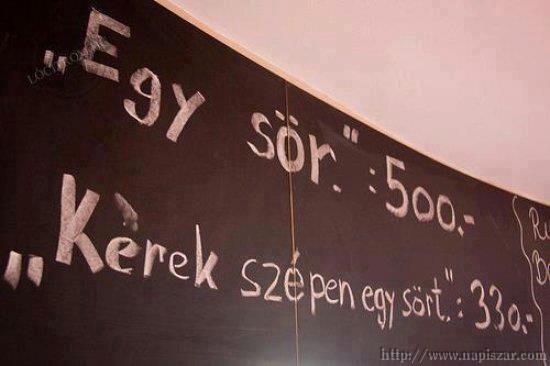 „Egy sör.": 500.-
„Kèrek szépen egy sört.": 330.-
http://www.napiszar.com